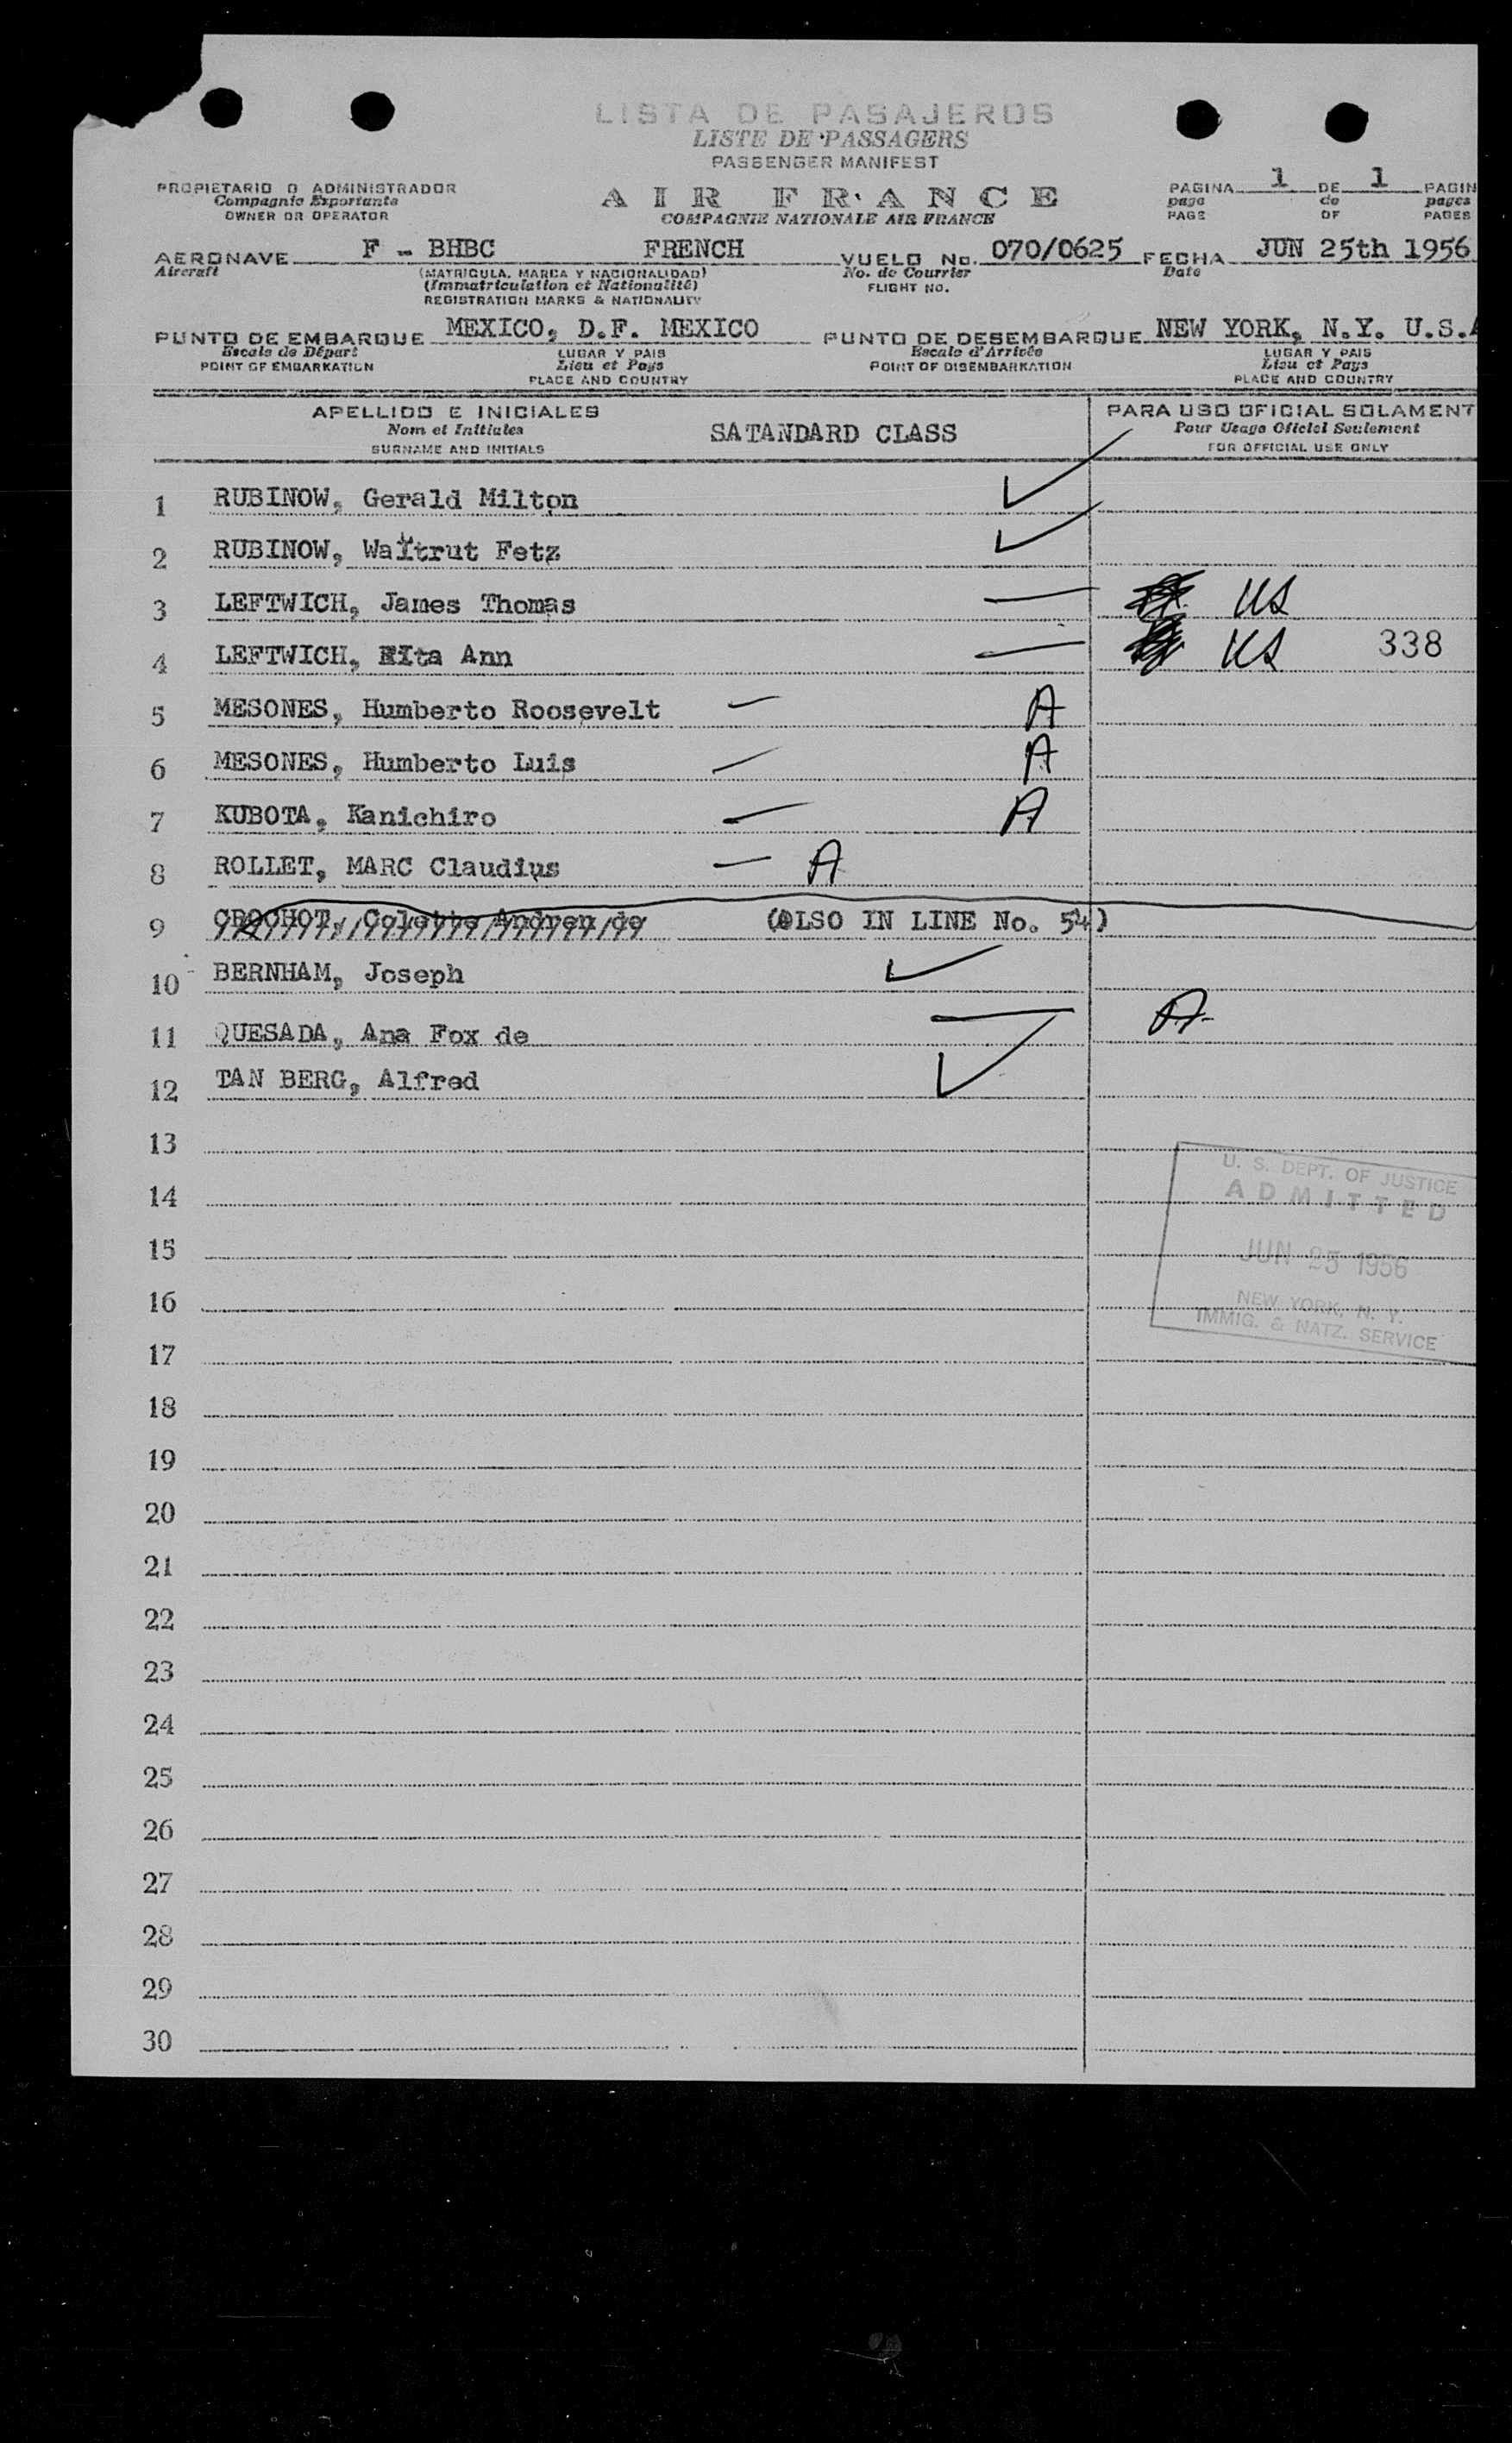 LISTA DE PASAJEROS
LISTE DE PASSAGERS
PASSENGER MANIFEST
PROPIETARIO O ADMINISTRADOR
Compagnie Exportante
OWNER OR OPERATOR
AIR FRANCE
COMPAGNIE NATIONALE AIR FRANCE
PAGINA 1 DE 1 PAGIN
page de pages
PAGE OF PAGES
AERONAVE F - BHBC FRENCH VUELO No. 070/0625 FECHA JUN 25th 1956
Aircraft (MATRICULA, MARCA Y NACIONALIDAD) No. de Courrier Date
(Immatriculation et Nationalité) FLIGHT NO.
REGISTRATION MARKS & NATIONALITY
PUNTO DE EMBARQUE MEXICO, D.F. MEXICO PUNTO DE DESEMBARQUE NEW YORK, N.Y. U.S.A
Escale de Départ LUGAR Y PAIS Escale d'Arrivée LUGAR Y PAIS
POINT OF EMBARKATION Lieu et Pays POINT OF DISEMBARKATION Lieu et Pays
PLACE AND COUNTRY PLACE AND COUNTRY
APELLIDO E INICIALES PARA USO OFICIAL SOLAMENT
Nom et Initiales SATANDARD CLASS Pour Usage Officiel Seulement
SURNAME AND INITIALS FOR OFFICIAL USE ONLY
1 RUBINOW, Gerald Milton
2 RUBINOW, Waltrut Fetz
3 LEFTWICH, James Thomas US
4 LEFTWICH, Rita Ann US 338
5 MESONES, Humberto Roosevelt A
6 MESONES, Humberto Luis A
7 KUBOTA, Kanichiro A
8 ROLLET, MARC Claudius A
9 CROCHOT, Colette Andren de (ALSO IN LINE No. 54)
10 BERNHAM, Joseph
11 QUESADA, Ana Fox de A
12 TAN BERG, Alfred
13
14
15
16
17
18
19
20
21
22
23
24
25
26
27
28
29
30
U. S. DEPT. OF JUSTICE
ADMITTED
JUN 25 1956
NEW YORK, N. Y.
IMMIG. & NATZ. SERVICE